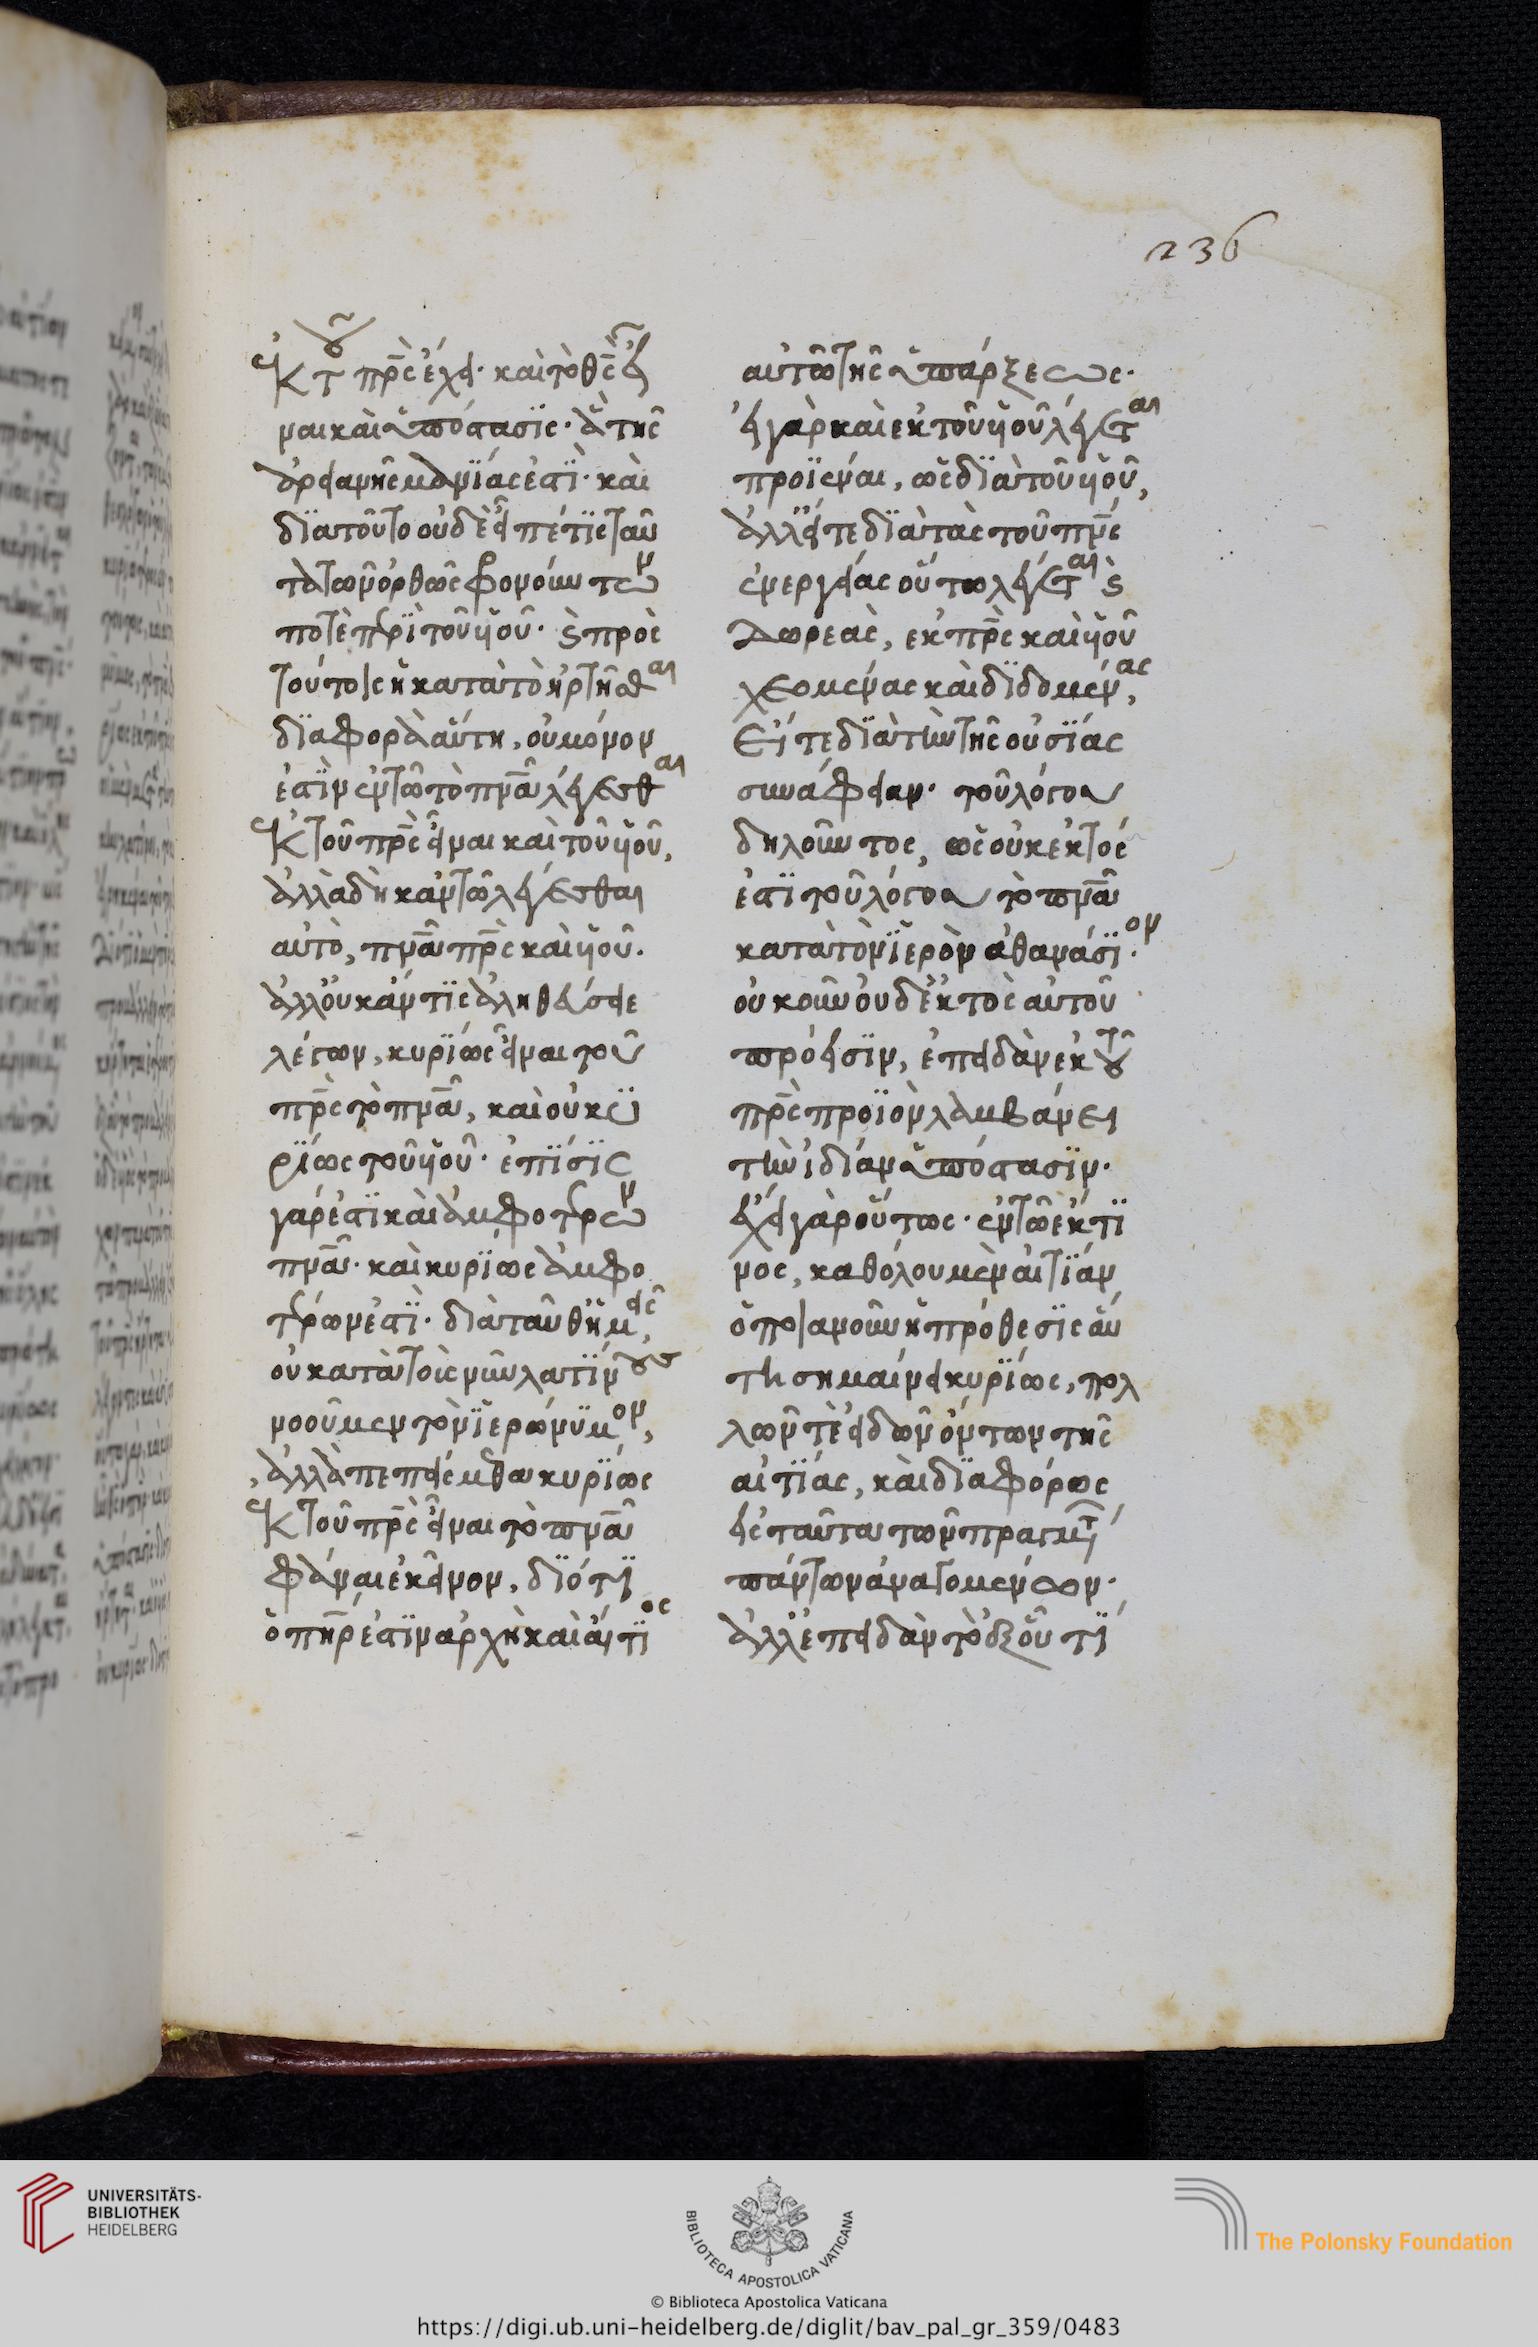 236
ἐκ τοῦ πρ̅ς ἔχει· καὶ τὸ θς̅ εἶ
ναι καὶ ὑπόστασις· ἃ τῆς
διὰ τοῦτο οὐδ' εἶπέ τις ταῦ
τα τῶν ὀρθῶς φρονούντων
ποτὲ περὶ τοῦ υἱοῦ· καὶ πρὸς
διαφορὰ αὕτη, οὐ μόνον
ἐστὶν ἐν τῷ τὸ πν̅α λέγεσθαι
ἐκ τοῦ πρ̅ς εἶναι καὶ τοῦ υἱοῦ,
ἀλλὰ δὴ κἀν τῷ λέγεσθαι
αὐτὸ, πν̅α πρ̅ς καὶ υἱοῦ.
ἀλλ' οὐκ ἄν τις ἀληθεύσειε
λέγων, κυρίως εἶναι τοῦ
πρ̅ς τὸ πν̅α, καὶ οὐ κυ
ρίως τοῦ υἱοῦ· ἐπίσης
γάρ ἐστι καὶ ἀμφοτέρων
πν̅α· καὶ κυρίως ἀμφο
τέρων ἐστί· διὰ ταῦθ' ἡμεῖς,
οὐ κατὰ τοὺς νῦν λατίνους
νοοῦμεν τὸν ἱερώνυμον,
ἀλλὰ πεπείσμεθα κυρίως
ἐκ τοῦ πρ̅ς εἶναι τὸ πν̅α
φάναι ἐκεῖνον, διότι
ὁ πη̅ρ ἐστὶν ἀρχὴ καὶ αἴτιος
αὐτῷ τῆς ὑπάρξεως·
εἰ γὰρ καὶ ἐκ τοῦ υἱοῦ λέγεται
προϊέναι, ὡς διὰ τοῦ υἱοῦ,
ἀλλ' εἴτε διὰ τὰς τοῦ πν̅ς
ἐνεργείας οὕτω λέγεται καὶ
δωρεὰς, ἐκ πρ̅ς καὶ υἱοῦ
χεομένας καὶ διδομένας,
εἴτε διὰ τὴν τῆς οὐσίας
συνάφειαν· τοῦ λόγου
δηλοῦντος, ὡς οὐκ ἐκτός
ἐστι τοῦ λόγου τὸ πν̅α
κατὰ τὸν ἱερὸν ἀθανάσιον·
οὐκοῦν οὐδ' ἐκτὸς αὐτοῦ
πρόεισιν, ἐπειδὰν ἐκ τοῦ
πρ̅ς προϊὸν λαμβάνει
τὴν ἰδίαν ὑπόστασιν·
ἔχει γὰρ οὕτως· ἐν τῷ ἔκ τι
νος, καθόλου μὲν αἰτίαν
ὁποιανοῦν ἡ πρόθεσις αὕ
τη σημαίνει κυρίως, πολ
λῶν τε εἰδῶν ὄντων τῆς
αἰτίας, καὶ διαφόρως
εἰς ταῦτα τῶν πραγμάτ
πάντων ἀναγομένων·
ἀλλ' ἐπειδὰν τὸ ἐξ οὗ τί
UNIVERSITÄTS-
BIBLIOTHEK
HEIDELBERG
BIBLIOTECA APOSTOLICA VATICANA
The Polonsky Foundation
© Biblioteca Apostolica Vaticana
https://digi.ub.uni-heidelberg.de/diglit/bav_pal_gr_359/0483